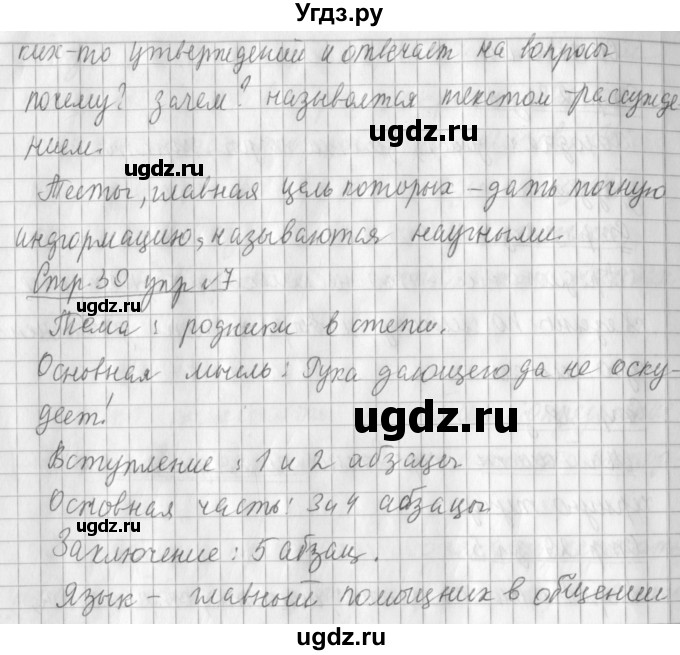 Угдз.ру
ких-то утверждений и отвечает на вопросы
почему? зачем? называется текстом-рассужде-
нием.
Тесты, главная цель которых - дать точную
информацию, называются научными.
Стр. 30 упр №7
Тема: родники в степи.
Основная мысль: Рука дающего да не оску-
деет!
Вступление: 1 и 2 абзацы
Основная часть: 3 и 4 абзацы
Заключение: 5 абзац.
Язык - главный помощник в общении
ugdz.ru
ugdz.ru
ugdz.ru
ugdz.ru
ugdz.ru
ugdz.ru
ugdz.ru
ugdz.ru
ugdz.ru